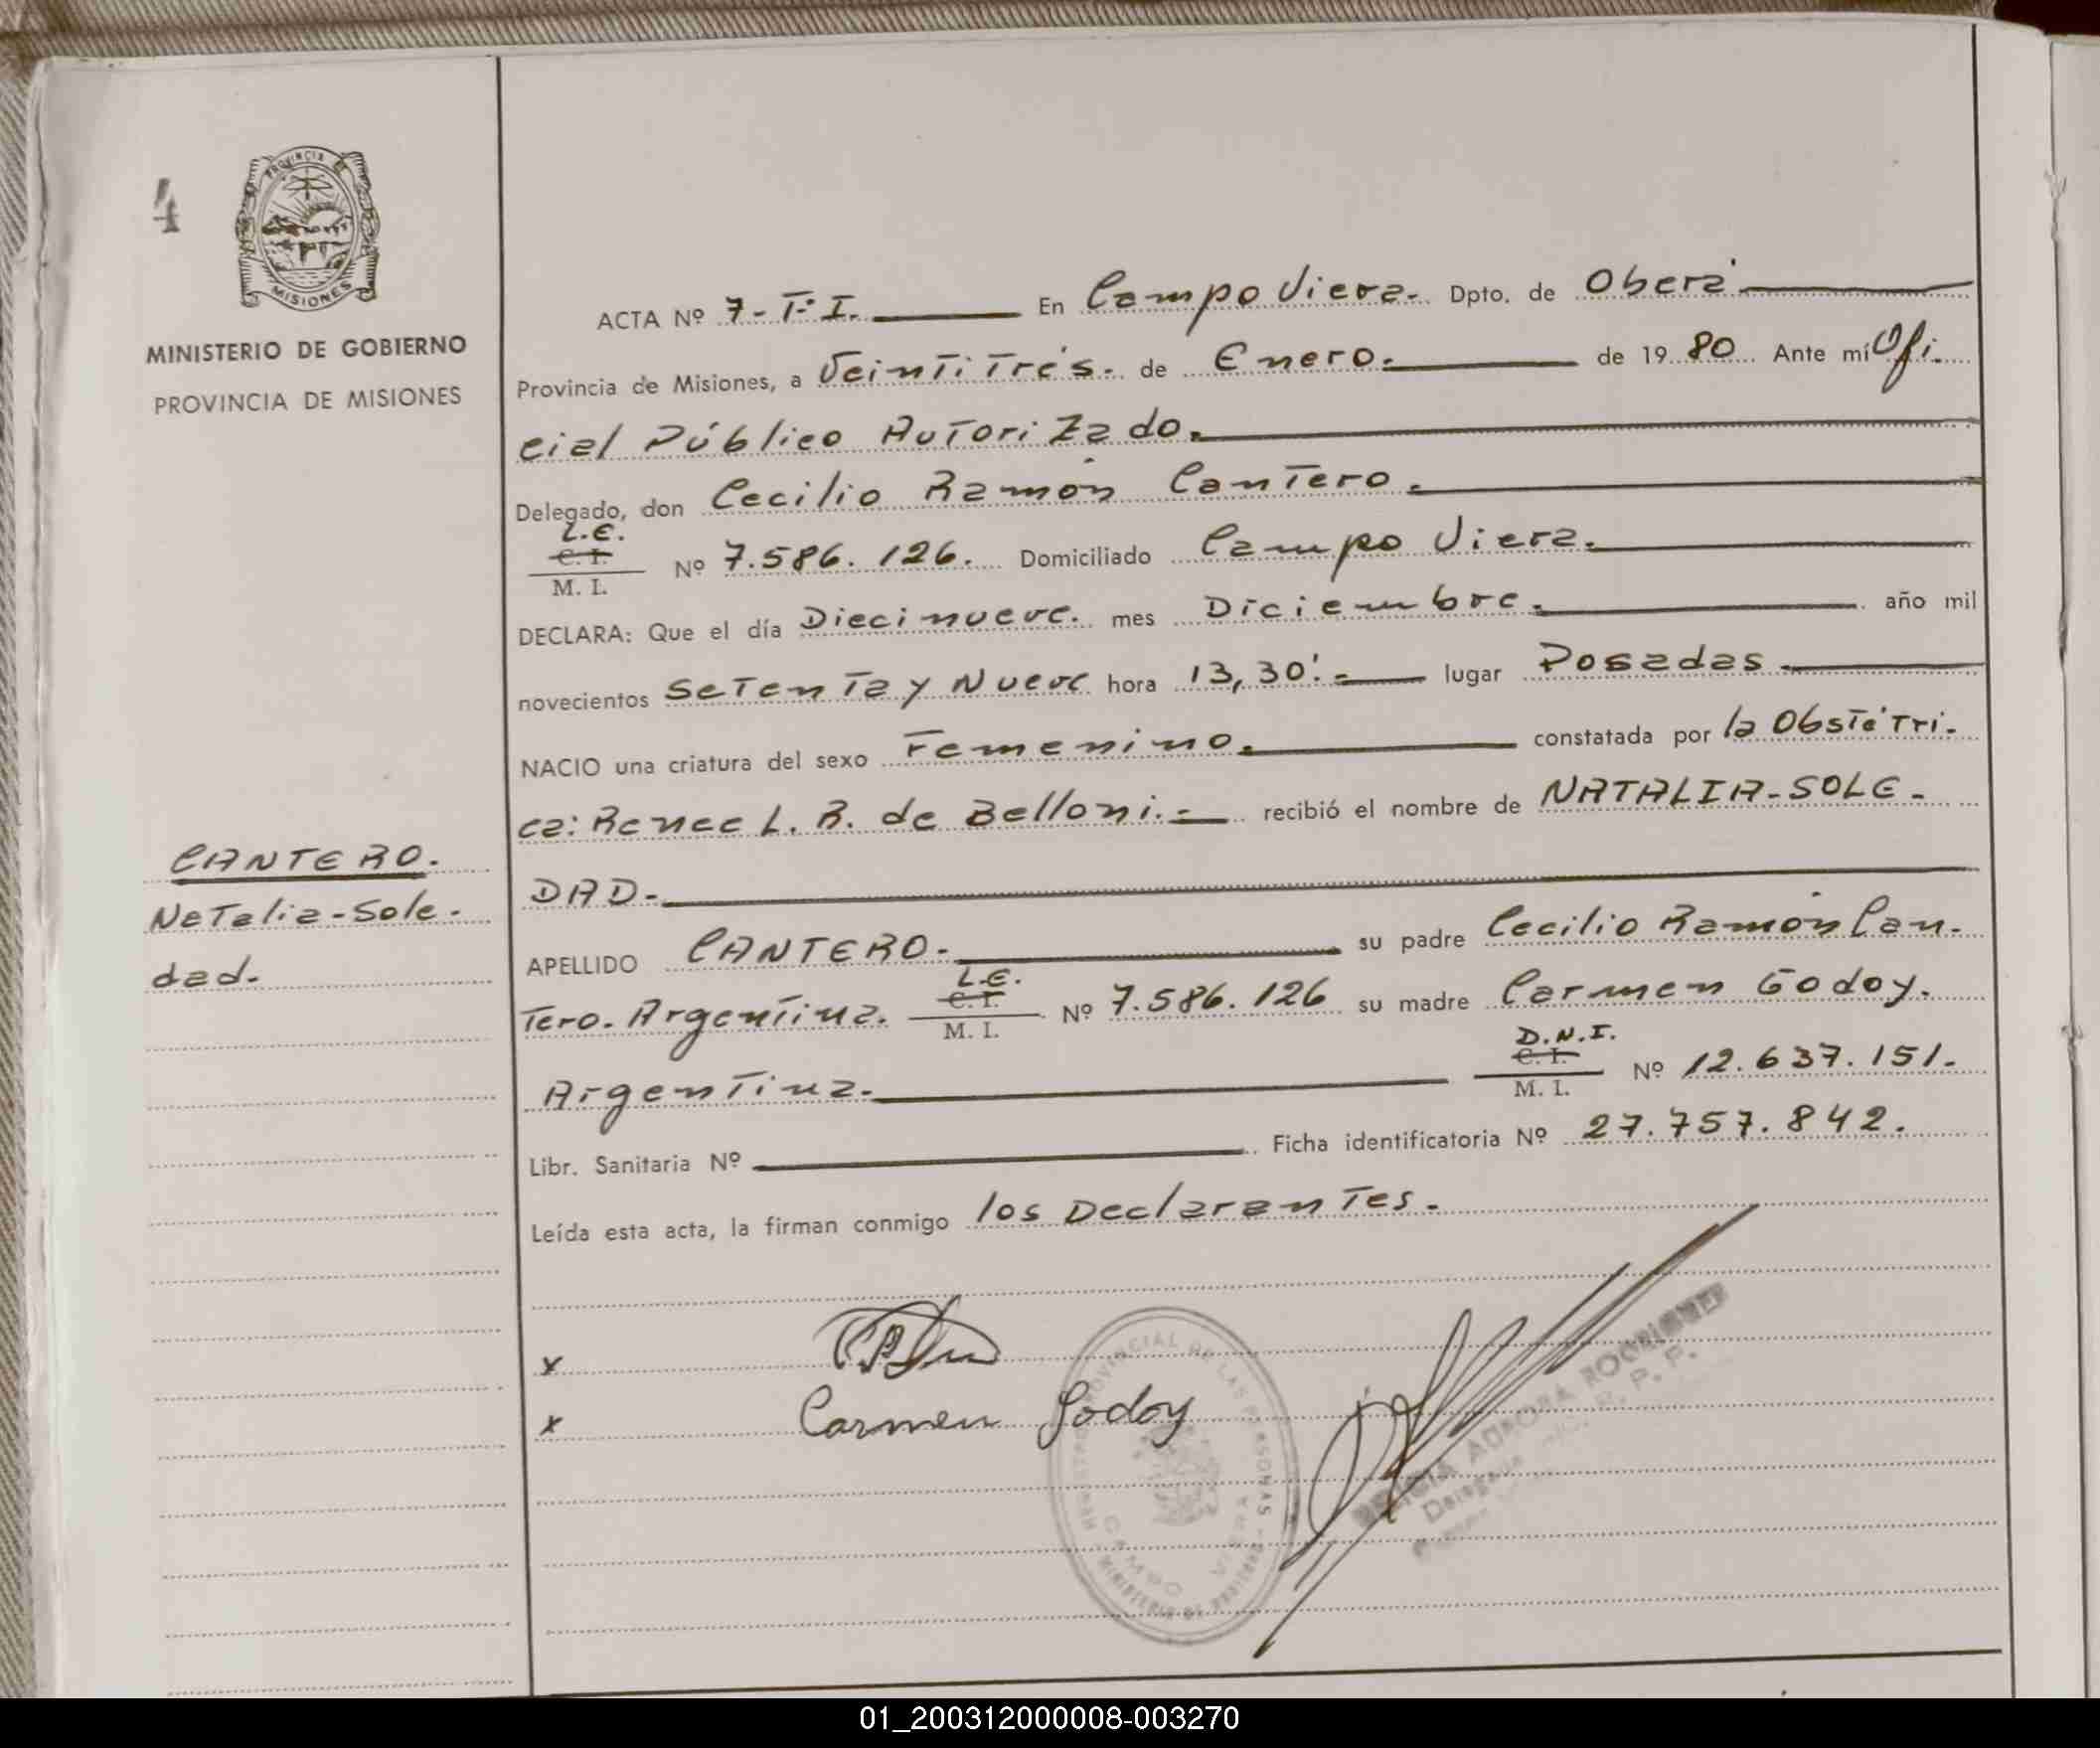 4
PROVINCIA DE
MISIONES
MINISTERIO DE GOBIERNO
PROVINCIA DE MISIONES
CANTERO.
Natalia-Sole-
dad.
ACTA Nº 7-Tº I. En Campo Viera. Dpto. de Oberá
Provincia de Misiones, a Veintitrés. de Enero. de 1980 Ante mí Ofi-
cial Público Autorizado.
Delegado, don Cecilio Ramón Cantero.
L.E.
C. I.
M. I.
Nº 7.586.126. Domiciliado Campo Viera.
DECLARA: Que el día Diecinueve. mes Diciembre. año mil
novecientos Setenta y Nueve hora 13,30'. lugar Posadas
NACIO una criatura del sexo Femenino. constatada por la Obstétri-
ca: Renee L. R. de Belloni.- recibió el nombre de NATALIA-SOLE-
DAD-
APELLIDO CANTERO- su padre Cecilio Ramón Can-
L.E.
tero. Argentina. C. I. Nº 7.586.126 su madre Carmen Godoy.
M. I.
D.N.I.
Argentina. C. I. Nº 12.637.151.
M. I.
Libr. Sanitaria Nº Ficha identificatoria Nº 27.757.842.
Leída esta acta, la firman conmigo los Declarantes.
x
x Carmen Godoy
PROVINCIAL DE LAS PERSONAS
CAMPO VIERA
AURORA
Delegada
R. P. P.
01_200312000008-003270